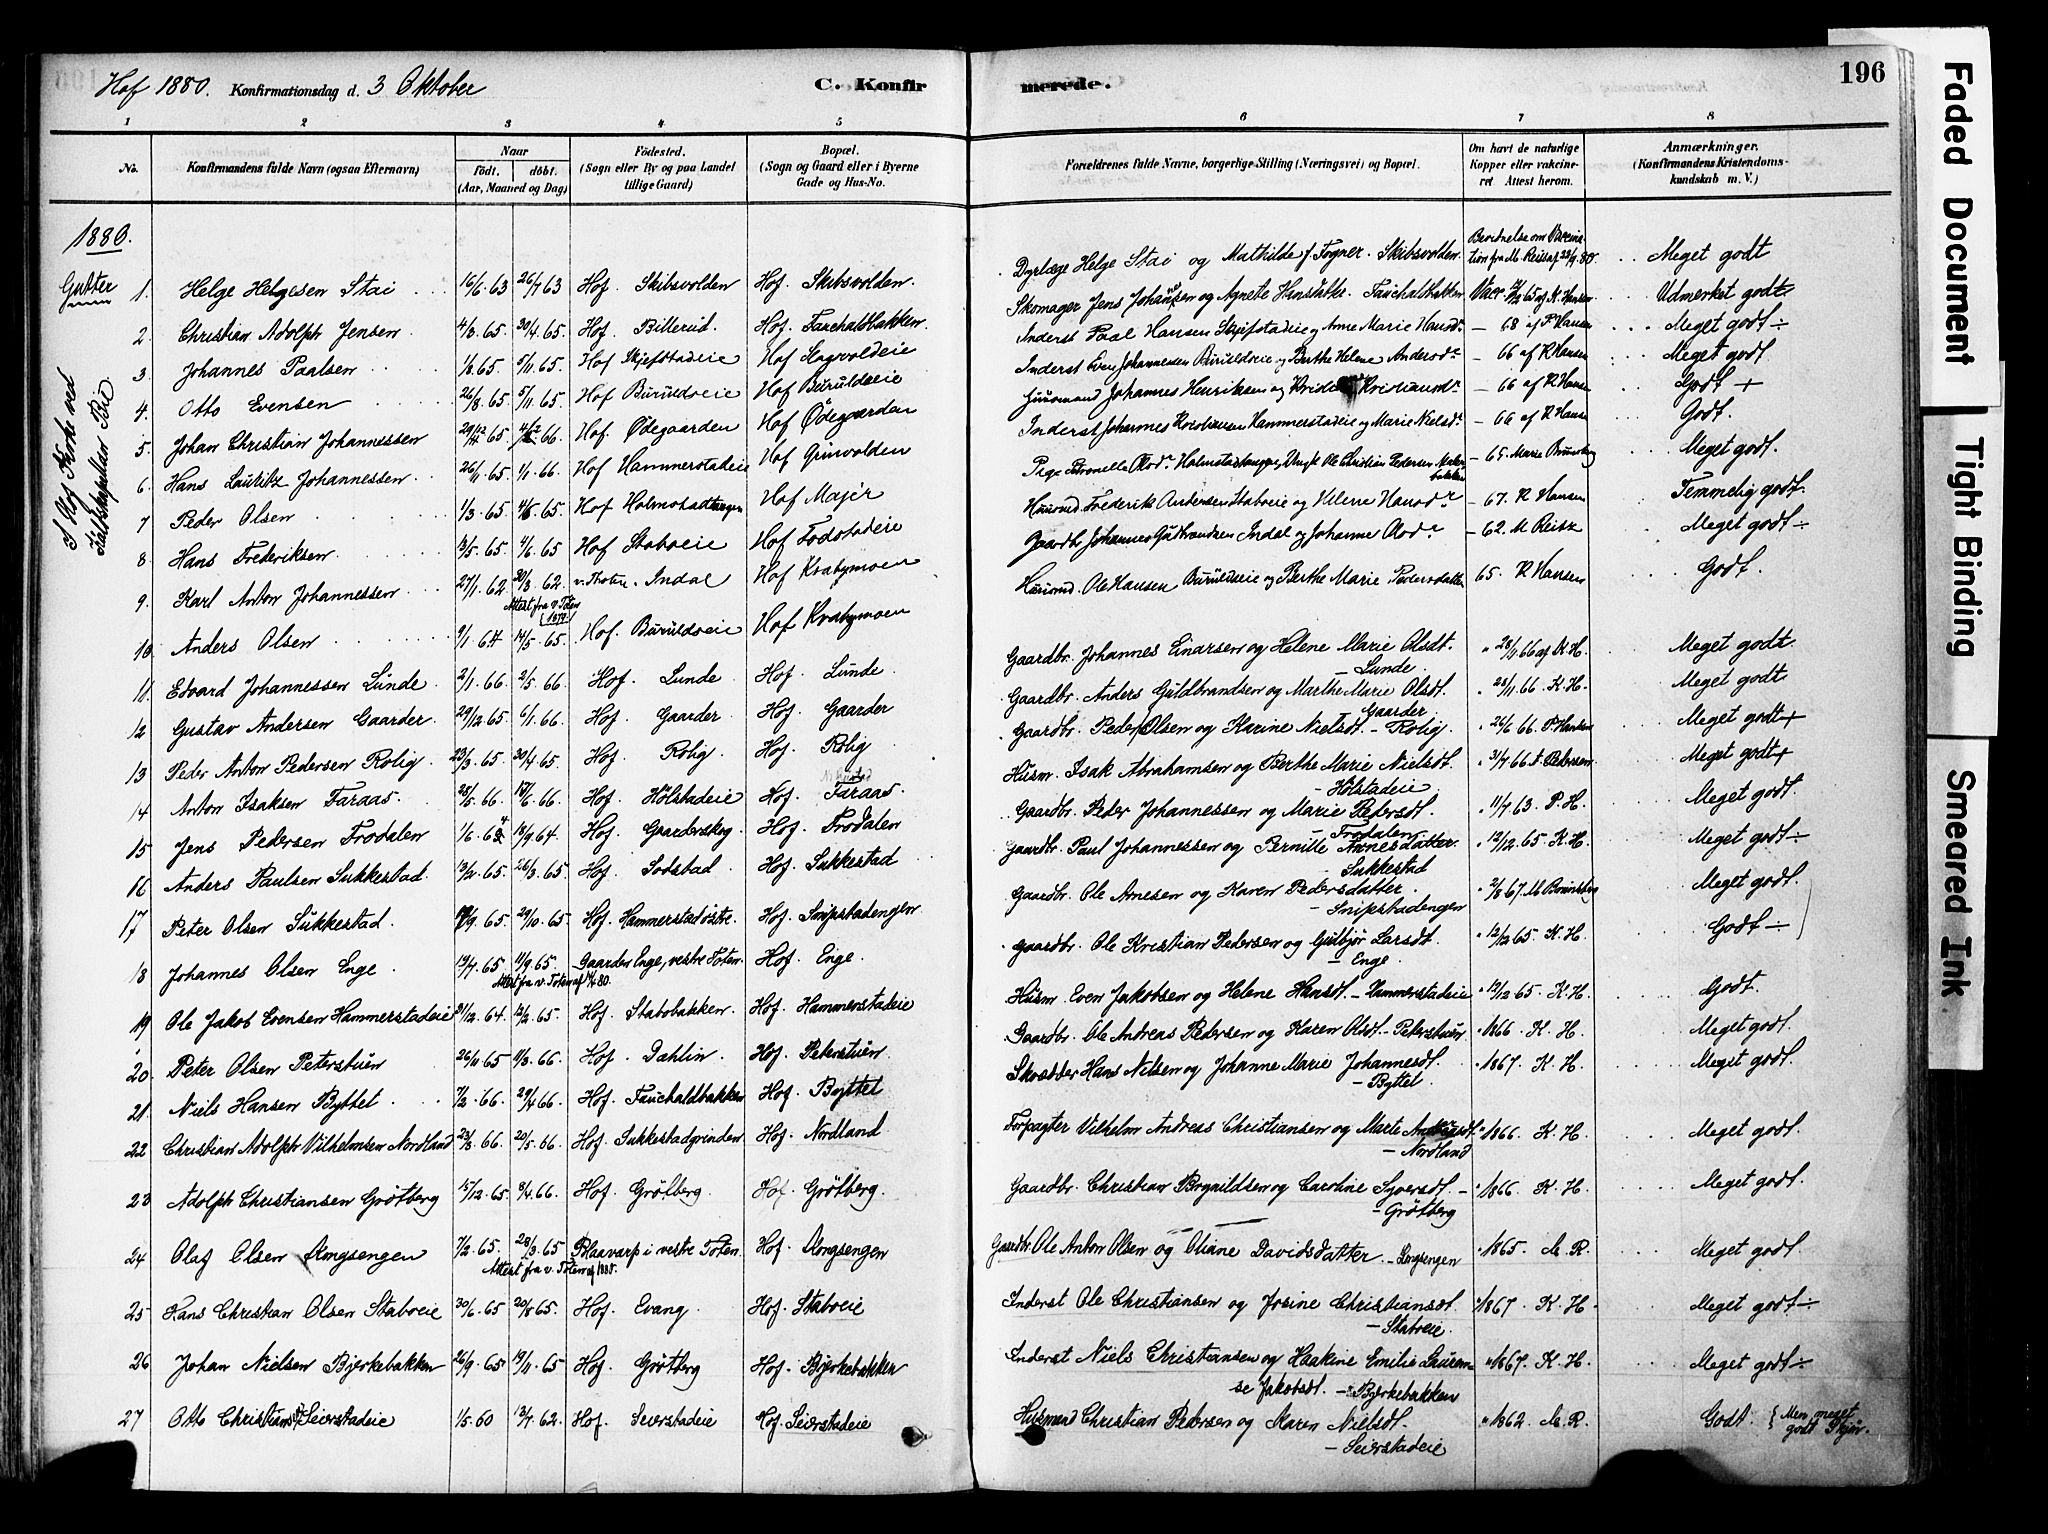 Hof 1880. Konfirmationsdag d. 3 Oktober
C. Konfir
merede.
196
1 2 3 4 5 6 7 8
No.
Konfirmandens fulde Navn (ogsaa Efternavn)
Naar
født. døbt.
(Aar, Maaned og Dag)
Fødested.
(Sogn eller By og paa Landet
tillige Gaard)
Bopæl.
(Sogn og Gaard eller i Byerne
Gade og Hus-No.
Forældrenes fulde Navne, borgerlige Stilling (Næringsvei) og Bopæl.
Om havt de naturlige
Kopper eller vakcine-
ret. Attest herom.
Anmærkninger.
(Konfirmandens Kristendoms-
kundskab m. V.)
1880.
Gutter
I Hof Kirke ved
1. Helge Helgesen Stai 16/6 63 26/7 63 Hof Skibsvolden Hof. Skibsvolden. Dyrlæge Helge Stai og Mathilde f. Fogner. Skibsvolden Meget godt
2. Christian Adolph Jensen 4/3. 65. 30/4. 65. Hof. Billerud. Hof. Fauchaldbakken. Skomager Jens Johansen og Agnete Fauchaldbakken Udmerket godt
3. Johannes Paalsen 1/6. 65. 5/11. 65. Hof Skjefstadeie Inderst Paal Hansen og Anne Marie Hansdr. – 68 af P Hansen Meget godt ÷
4. Otto Evensen 26/8. 65. 5/11. 65. Hof Buruldseie Hof Buruldseie Inderst Even Johannessen Buruldseie og Berthe Helene Andersdr – 66 af P. Hansen Meget godt
5. Johan Christian Johannessen Hof. Ødegaarden Hof Ødegaarden Johannes Henriksen og – 66 af P. Hansen Godt +
6. Hans Lauritz Johannessen 26/11. 65. 1/1. 66. Hof Hammerstadeie Hof Grinvolden Inderst Johannes Hammerstadeie og Marie Nielsdr. – 66 af P. Hansen Godt.
7. Peder Olsen 1/3. 65. Hof Holmstadtangen Hof Majer Meget godt.
8. Hans Frederiksen. 13/5. 65. 4/6. 65 Hof Staboeie Hof Fodstadeie Husmd Frederik Andersen Staboeie og Helene Hansdr – 67. P. Hansen Temmelig godt.
9. Karl Anton Johannessen 27/1. 62. 30/3. 62. Attest fra v. Toten v. Thoten. Indal Hof Krabymoen Gaardbr Johannes Gudbrandsen Indal og Johanne Olsdr – 62. M Reisz Meget godt ÷
10. Anders Olsen 9/1. 64 14/5. 65. Hof. Buruldseie Hof Krabymoen Husmd. Ole Hansen Buruldseie og Berthe Marie Pedersdatter 65. P. Hansen Godt.
11. Edvard Johannessen Lunde 2/1. 66. 2/5. 66. Hof. Lunde Hof. Lunde. Gaardbr. Johannes Einarsen og Helene Marie Olsdt. – Lunde Meget godt
12 Gustav Andersen Gaarder. 29/12. 65. 6/1. 66. Hof. Gaarder. Hof. Gaarder Gaardbr. Anders Guldbrandsen og Marthe Marie Olsdt. Gaarder 66. K. H. Meget godt
13 Peder Anton Pedersen Rolig. 23/3. 65. 30/4. 65. Hof. Rolig Hof. Rolig Gaardbr. Peder Olsen og Karine Nielsdt. – Rolig. 26/6 66. P. Hansen Meget godt +
14 Anton Isaksen Faraas. 28/5. 66. 17/6. 66. Hof. Hølstadeie Hof. Faraas. Husm. Isak Abrahamsen og Berthe Marie Nielsdt. – Hølstadeie. 31/7 66 Meget godt +
15 Jens Pedersen Frodalen 1/6. 64 18/9 64. Hof. Gaarderskog Hof. Frodalen Gaardbr. Peder Johannessen og Marie Pedersdt. – Frodalen. 11/7 63. P. H. Meget godt.
16 Anders Paulsen Sukkestad. 13/2. 65. 26/3. 65. Hof. Sodstad Hof. Sukkestad Gaardbr. Paul Johannessen og Pernille Arnesdatter. Sukkestad 12/12. 65 K. H. Meget godt ÷
17 Peter Olsen Sukkestad. 29/10. 65. Hof. Hammerstadøstre. Hof. Snipstadengen Gaardbr. Ole Arnesen og Karen Pedersdatter. – Snipstadengen Meget godt.
18 Johannes Olsen Enge. 19/7. 65 11/9 65. Attest fra v. Toten Gaarden Enge, vestre Toten. Hof. Enge. Gaardbr. Ole Kristian Pedersen og Gulbjør Larsdt. – Enge. 12/12. 65. K. H. Godt ÷
19 Ole Jakob Evensen Hammerstadeie 64. 12/2. 65. Hof. Stabobakken. Hof. Hammerstadeie Husm. Even Jakobsen og Helene Hansdt. – Hammerstadeie 12/12 65. K. H. Godt.
20 Peter Olsen Peterstuen 26/11 65. 11/3. 66. Hof. Dahlin. Hof. Peterstuen. Gaardbr. Ole Andreas Pedersen og Karen Olsdt. – Peterstuen 1866. K. H. Meget godt.
21. Niels Hansen Byttet. 7/2. 66. 29/4 66. Hof. Fauchaldbakken Hof. Byttet Skrædder Hans Nilsen og Johanne Marie Johannesdt. – Byttet. 1867. K. H. Meget godt.
22 Christian Adolph Vilhelmsen Nordland 23/3. 66. 20/5. 66. Hof. Sukkestadgrinden Hof. Nordland Forpagter Vilhelm Andreas Christiansen og Marte – Nordland 1866. K. H. Meget godt.
23 Adolph Christiansen Grøtberg 15/12. 65. 8/4. 66. Hof. Grøtberg. Hof. Grøtberg. Gaardbr. Christian Brynildsen og Caroline Syversdt. – Grøtberg 1866. K. H. Meget godt.
24 Olaf Olsen 7/2. 65. 28/3. 65 Attest fra v. Toten af 1880. Blaavarp i vestre Toten. Hof. Gaardbr. Ole Anton Olsen og Oliane Davidsdatter. 1865. M. R. Meget godt.
25 Hans Christian Olsen Staboeie 30/6. 65 20/8 65. Hof. Evang Hof. Staboeie Inderst Ole Christiansen og Josine Christiansdt. – Staboeie. 1867. K. H. Meget godt ÷
26 Johan Nielsen Bjerkebakken 26/9. 65 19/11. 65 Hof. Grøtberg Hof. Bjerkebakken Inderst Niels Christiansen og Haakine Emilie Lauren-
se Jakobsdt. – Bjerkebakken 1867. K. H. Meget godt ÷
27 Otto Christians. Seierstadeie 1/5. 60 13/7. 62. Hof. Seierstadeie Hof. Seierstadeie Husmand Christian Pedersen og Karen Nielsdt. – Seierstadeie 1862. M. R. Godt. { Men meget
godt Skjøn.
Faded Document
Tight Binding
Smeared Ink